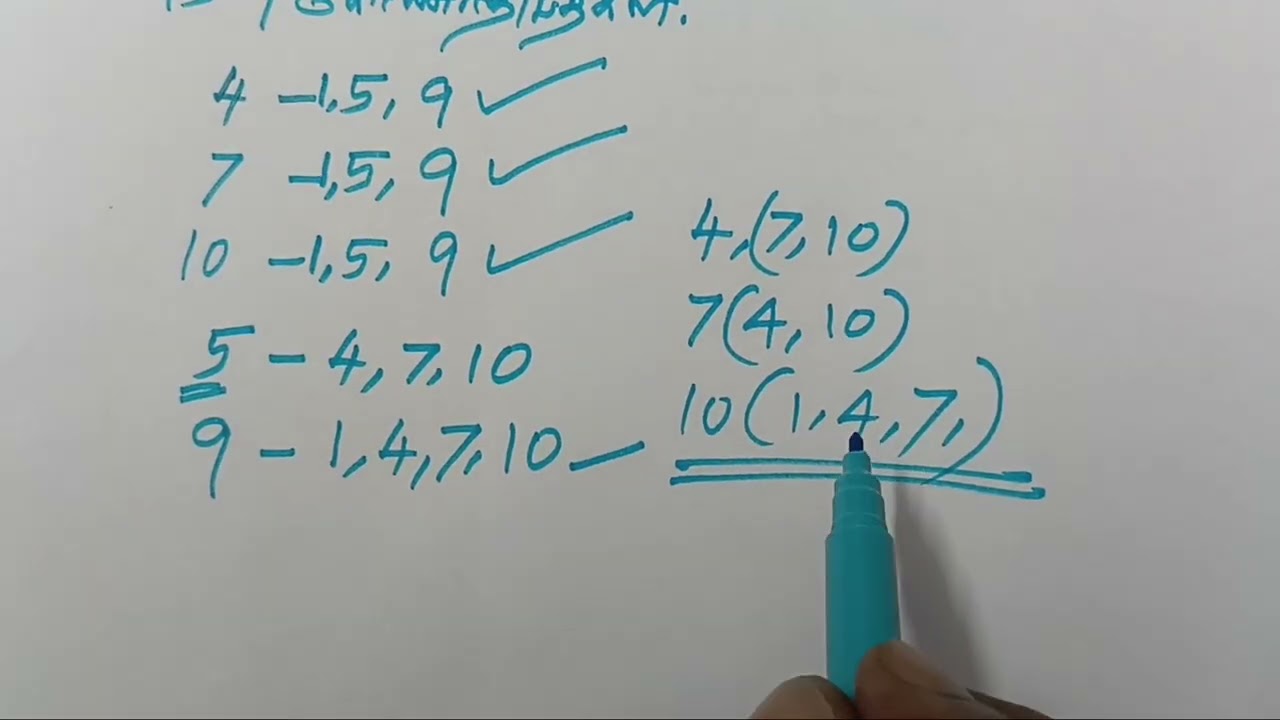 4 - 1, 5, 9 ✓
7 - 1, 5, 9 ✓
10 - 1, 5, 9 ✓
5 - 4, 7, 10
9 - 1, 4, 7, 10
4, (7, 10)
7 (4, 10)
10 (1, 4, 7, )